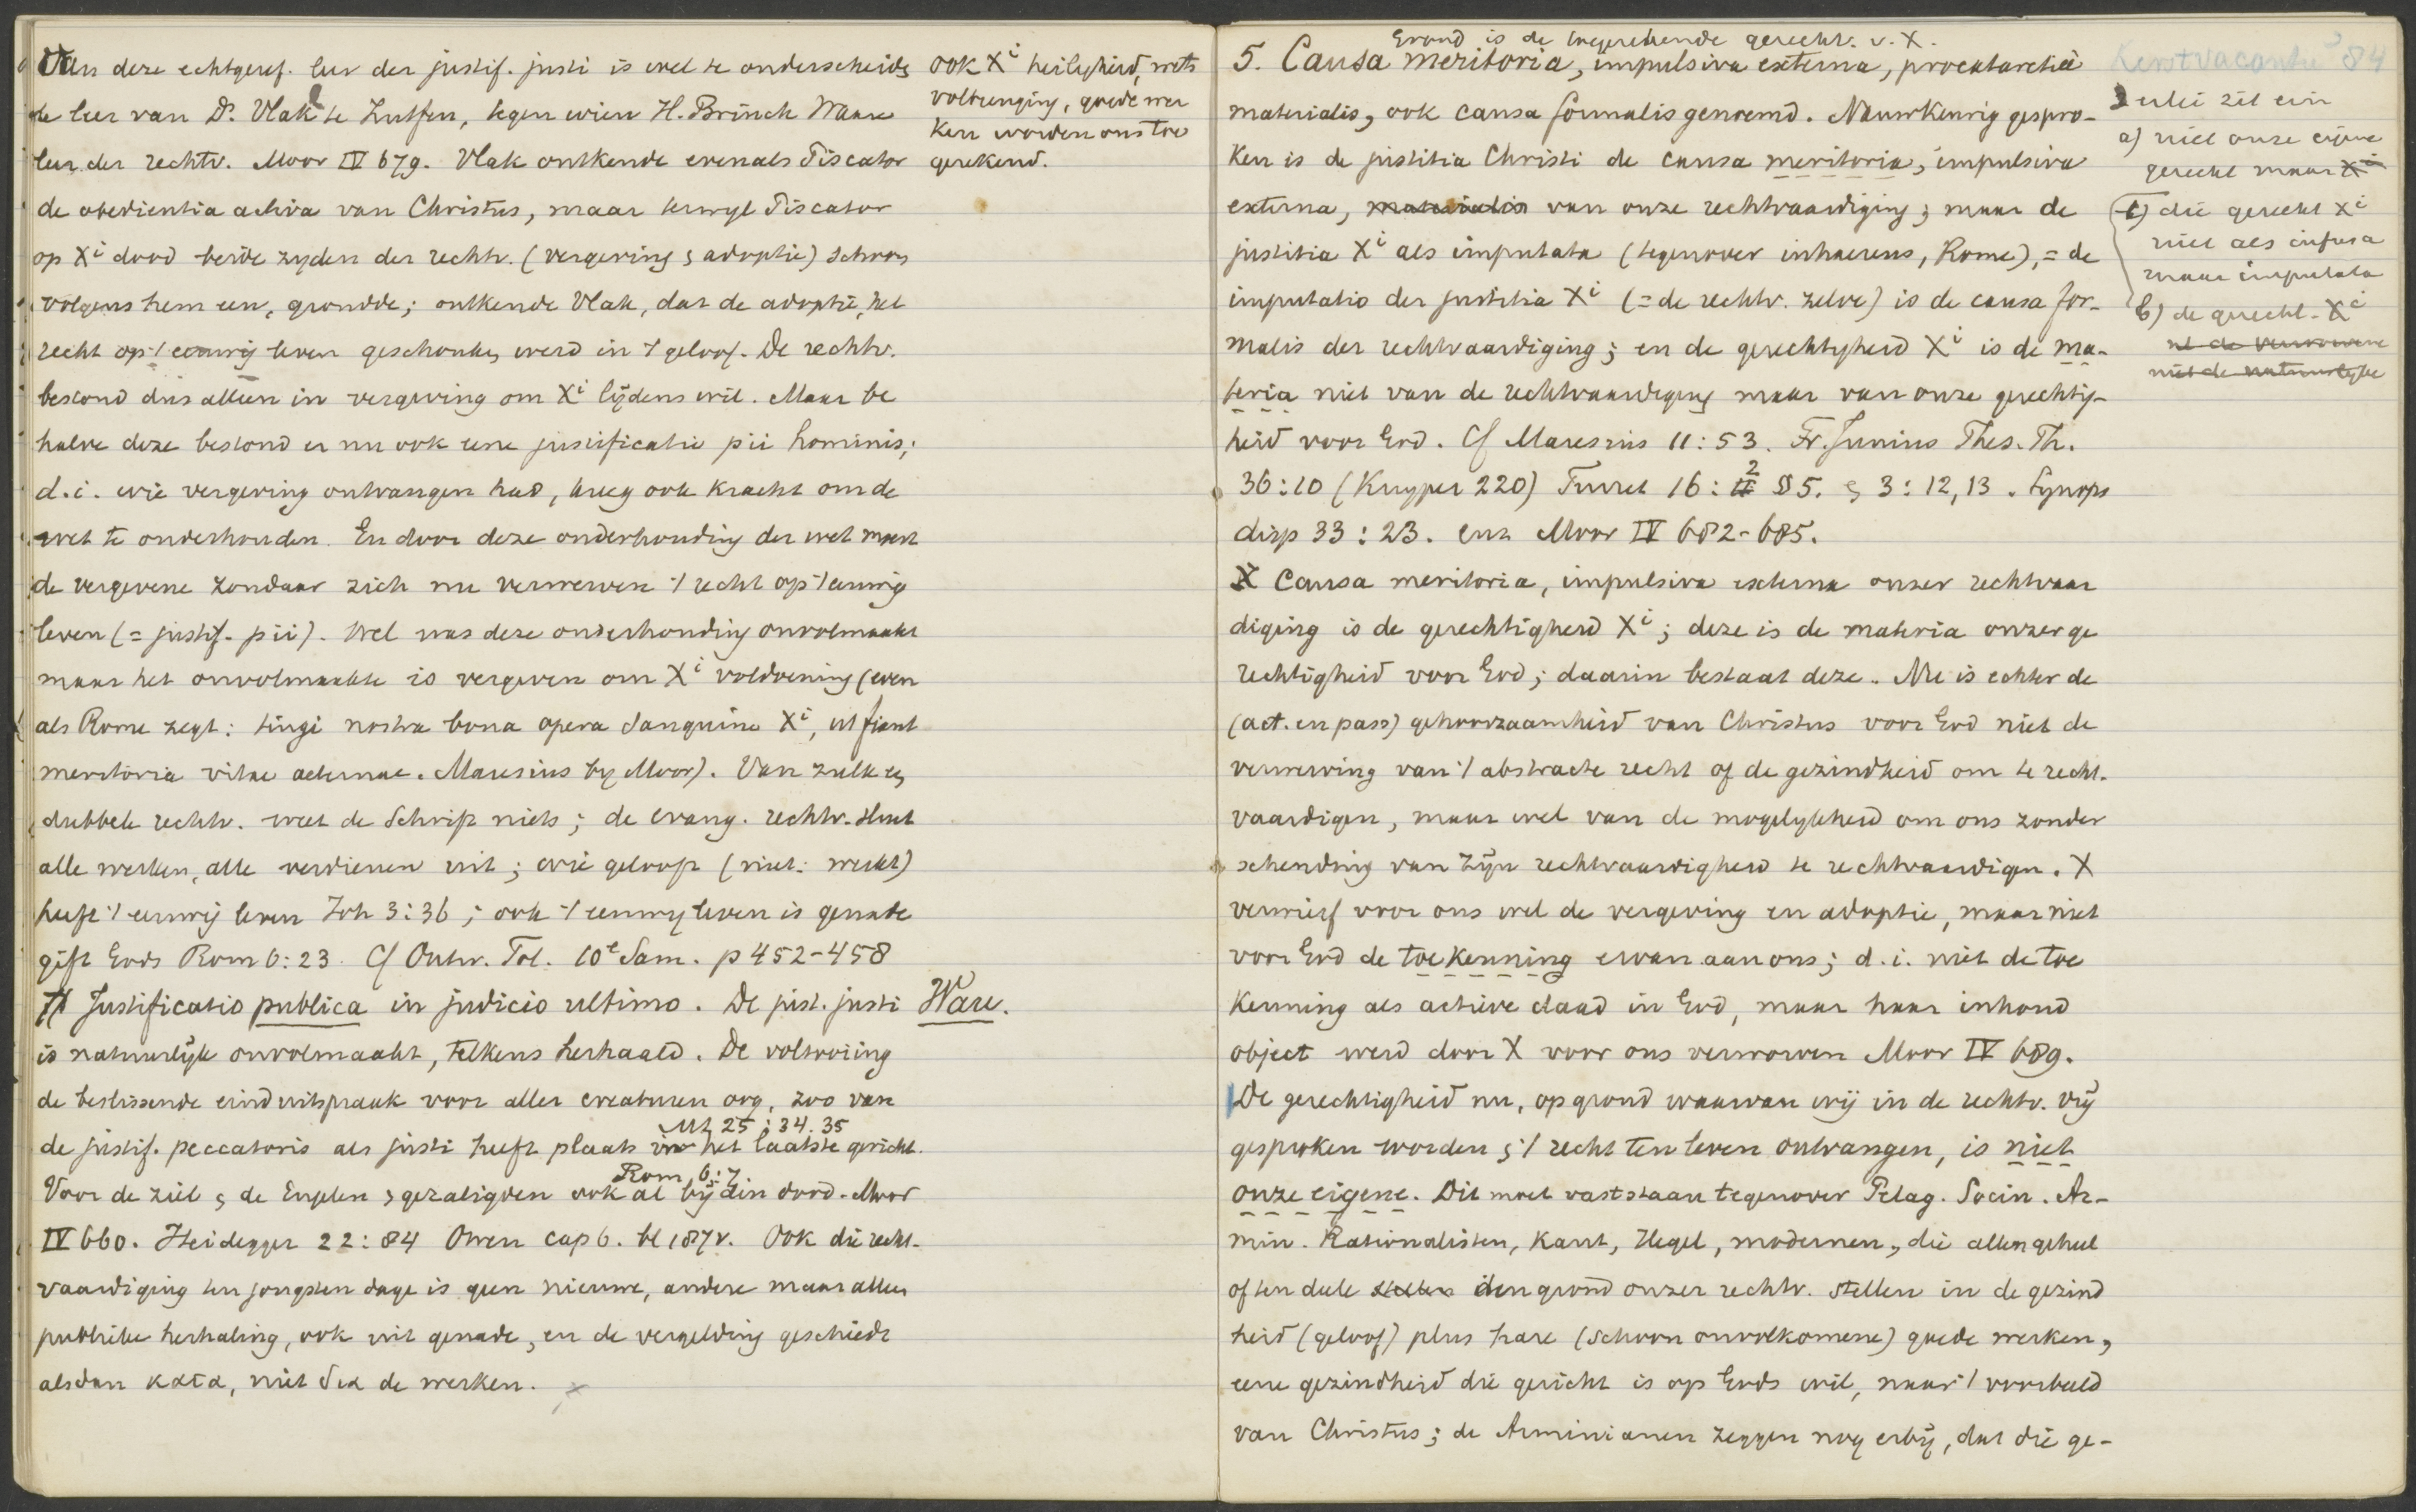 Van deze echtgeref. leer der justif. justi is wel te onderscheiden
de leer van Ds. Vlak te Zutfen, tegen wien H. Brinck Ware
leer der rechtv. Moor IV 679. Vlak ontkende evenals Piscator
de obedientia activa van Christus, maar terwyl Piscator
op Xi dood beide zyden der rechtv. (vergeving & adoptie) schoon
volgens hem een, grondde; ontkende Vlak, dat de adoptie, het
recht op 't eeuwig leven geschonken werd in 't geloof. De rechtv.
bestond dus alleen in vergeving om Xi lijdens wil. Maar be
halve deze bestond er nu ook eene justificatie pii hominis;
d.i. wie vergeving ontvangen had, kreeg ook kracht om de
wet te onderhouden. En door deze onderhouding der wet moest
de vergevene zondaar zich nu verwerven 't recht op 't eeuwig
leven (= justif. pii). Wel was deze onderhouding onvolmaakt
maar het onvolmaakte is vergeven om Xi voldoening (even
als Rome zegt: tingi nostra bona opera sanguine Xi, ut fiant
meritoria vitae aeternae. Maresius by Moor). Van zulk een
dubbele rechtv. weet de Schrift niets; de evang. rechtv. sluit
alle werken, alle verdienen uit; wie gelooft (niet: werkt)
heeft 't eeuwig leven Joh 3:36; ook 't eeuwig leven is genade
gift Gods Rom 6:23. Cf Ontw. Tol. 10e Sam. p 452-458
Justificatio publica in judicio ultimo. De just. justi
is natuurlijk onvolmaakt, telkens herhaald. De voltooiing
de beslissende einduitspraak voor aller creaturen oog, zoo van
Mt 25:34.35
de justif. peccatoris als justi heeft plaats in het laatste gericht.
Rom 6:7
Voor de ziel & de Engelen & gezaligden ook al bij den dood. Moor
IV 660. Heidegger 22:84 Owen cap 6. bl 187v. Ook die recht-
vaardiging ten jongsten dage is geen nieuwe, andere maar alleen
publieke herhaling, ook uit genade, en de vergelding geschiedt
alsdan κατα, niet δια de werken.
ook Xi heiligheid, wets
volbrenging, goede wer
ken worden ons toe
gerekend.
Ware.
Grond is de toegerekende gerecht. v. X.
5. Causa meritoria, impulsiva externa, procatarctica
materialis, ook causa formalis genoemd. Nauwkeurig gespro-
ken is de justitia Christi de causa meritoria, impulsiva
externa, materialis van onze rechtvaardiging; maar de
justitia Xi als imputata (tegenover inhaerens, Rome), = de
imputatio der justitia Xi (= de rechtv. zelve) is de causa for-
malis der rechtvaardiging; en de gerechtigheid Xi is de ma-
teria niet van de rechtvaardiging maar van onze gerechtig-
heid voor God. Cf Maresius 11:53. Fr. Junius Thes. Th.
36:10 (Kuyper 220) Turret 16:2 §5. & 3:12,13. Synops
disp 33:23. enz Moor IV 682-685.
X Causa meritoria, impulsiva externa onzer rechtvaar
diging is de gerechtigheid Xi; deze is de materia onzer ge
rechtigheid voor God; daarin bestaat deze. Nu is echter de
(act. en pass) gehoorzaamheid van Christus voor God niet de
verwerving van 't abstracte recht of de gezindheid om te recht-
vaardigen, maar wel van de mogelykheid om ons zonder
schending van zijn rechtvaardigheid te rechtvaardigen. X
verwierf voor ons wel de vergeving en adoptie, maar niet
voor God de toekenning ervan aan ons; d.i. niet de toe
kenning als actieve daad in God, maar haar inhoud
object werd door X voor ons verworven Moor IV 689.
De gerechtigheid nu, op grond waarvan wij in de rechtv. vrij
gesproken worden & 't recht ten leven ontvangen, is niet
onze eigene. Dit moet vaststaan tegenover Pelag. Socin. Ar-
min. Rationalisten, Kant, Hegel, modernen, die allen geheel
of ten deele stellen den grond onzer rechtv. stellen in de gezind
heid (geloof) plus hare (schoon onvolkomene) goede werken,
eene gezindheid die gericht is op Gods wil, naar 't voorbeeld
van Christus; de Arminianen zeggen nog erbij, dat die ge-
Kerstvacantie 84
3 erlei zit erin
a) niet onze eigene
gerecht maar Xi
c) die gerecht Xi
niet als infusa
maar imputata
b) de gerecht. Xi
niet de natuurlyke